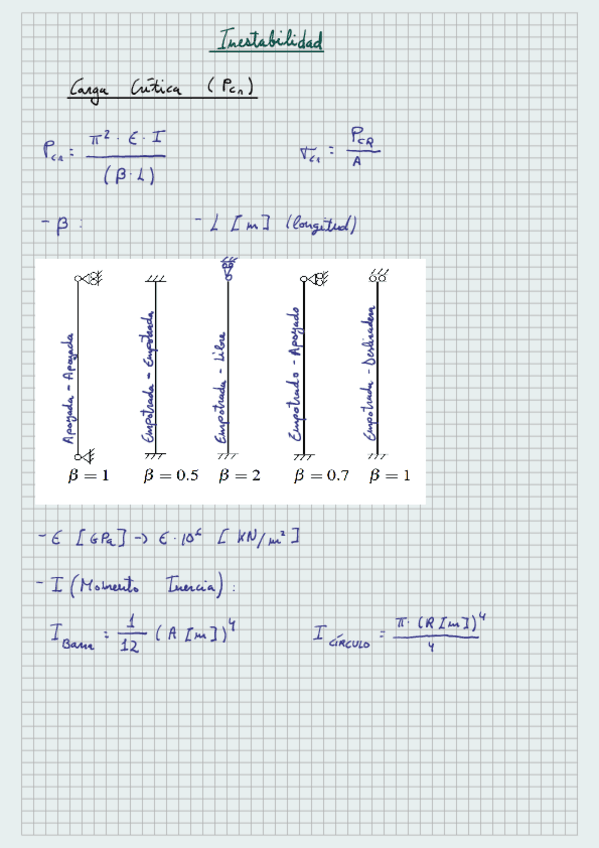 Inestabilidad
Carga Crítica (Pcr)
Pcr = π² · E · I / (β · L)
σcr = PCR / A
- β :
- L [m] (longitud)
Apoyada - Apoyada
Empotrada - Empotrada
Empotrada - Libre
Empotrado - Apoyado
Empotrada - Deslizadera
β = 1
β = 0.5
β = 2
β = 0.7
β = 1
- E [GPa] -> E·10⁶ [KN/m²]
- I (Momento Inercia) :
I Barra = 1/12 (A [m])⁴
I CÍRCULO = π · (R [m])⁴ / 4